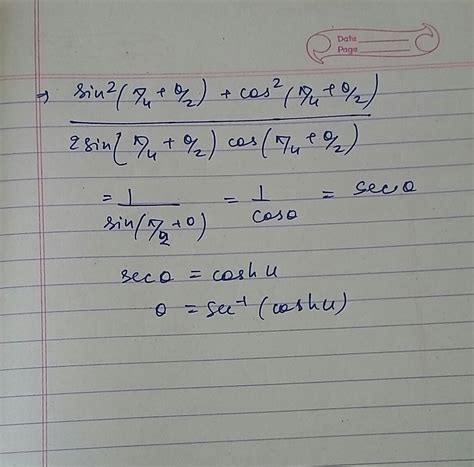 Date
Page
→ sin²(π/4 + θ/2) + cos²(π/4 + θ/2)
2 sin(π/4 + θ/2) cos(π/4 + θ/2)
= 1 / sin(π/2 + θ) = 1 / cosθ = secθ
secθ = cosh u
θ = sec⁻¹ (cosh u)